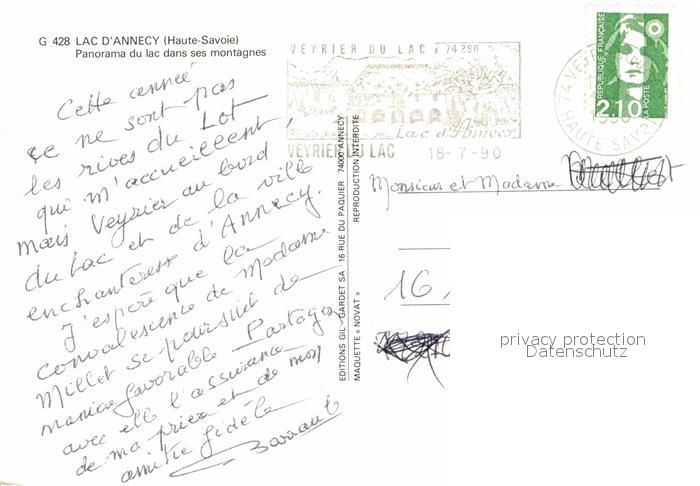 G 428 LAC D'ANNECY (Haute-Savoie)
Panorama du lac dans ses montagnes
Cette année
ce ne sont pas
les rives du Lot
qui m'accueillent,
mais Veyrier au bord
du lac et de la ville
enchanteresse d'Annecy.
J'espère que la
convalescence de Madame
Millet se poursuit de
manière favorable. Partagez
avec elle l'assurance
de ma prière et de mon
amitié fidèle
EDITIONS GIL - GARDET SA 16 RUE DU PAQUIER 74000 ANNECY
MAQUETTE « NOVAT » REPRODUCTION INTERDITE
VEYRIER DU LAC 74290
Lac d'Annecy
VEYRIER DU LAC 18-7-90
HAUTE SAVOIE
REPUBLIQUE FRANÇAISE
2,10
LA POSTE
Monsieur et Madame
16,
privacy protection
Datenschutz